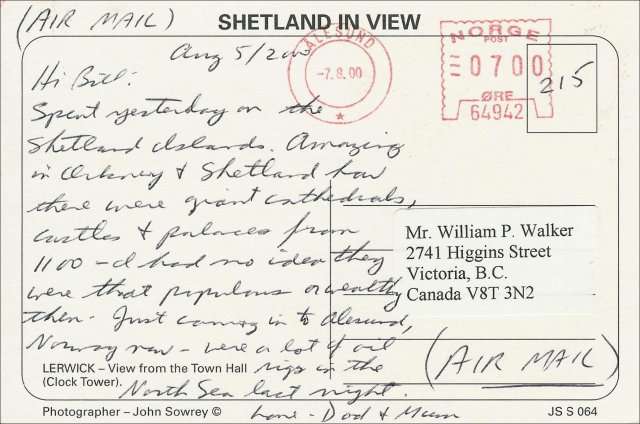 (AIR MAIL)
SHETLAND IN VIEW
Aug 5/2000
ALESUND
-7.8.00
NORGE
POST
0700
ØRE
64942
215
Hi Bill:
Spent yesterday on the
Shetland Islands. Amazing
in Orkney & Shetland how
there were grant cathedrals,
castles & palaces from
1100 - I had no idea they
were that populous or wealthy
then. Just coming in to Alesund,
Norway now - were a lot of oil
rigs in the
North Sea last night.
Love - Dad & Mum
Mr. William P. Walker
2741 Higgins Street
Victoria, B.C.
Canada V8T 3N2
(AIR MAIL)
LERWICK – View from the Town Hall
(Clock Tower).
Photographer – John Sowrey ©
JS S 064